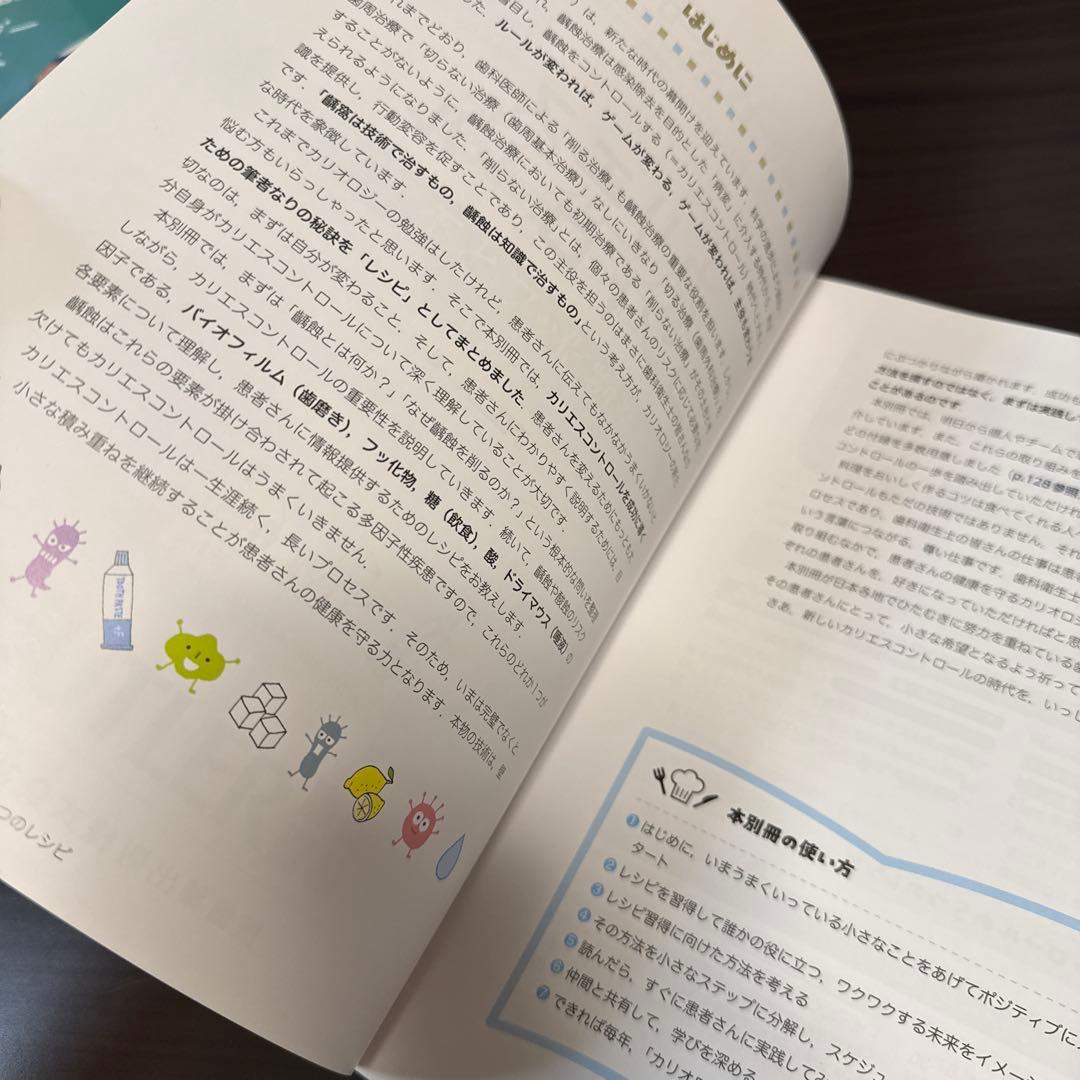 はじめに
は、新たな時代の幕開けを迎えています。科学の進歩により
目し、齲蝕治療は感染除去を目的とした「病変」に介入する
齲蝕をコントロールする（＝カリエスコントロール）時代に
ルールが変われば、ゲームが変わる。ゲームが変われば、
れまでどおり、歯科医師による「削る治療」も齲蝕治療の重要な役割を担います。
歯周治療で「切らない治療（歯周基本治療）」なしにいきなり「切る治療（歯周外科治療）」を
することがないように、齲蝕治療においても初期治療である「削らない治療」が
えられるようになりました。「削らない治療」とは、個々の患者さんのリスクに応じて
識を提供し、行動変容を促すことであり、この主役を担うのはまさに歯科衛生士の皆さん
です。「齲窩は技術で治すもの、齲蝕は知識で治すもの」という考え方が、カリオロジーの
な時代を象徴しています。
これまでカリオロジーの勉強はしたけれど、患者さんに伝えてもなかなかうまくいかない、
悩む方もいらっしゃったと思います。そこで本別冊では、カリエスコントロールを成功に導く
ための筆者なりの秘訣を「レシピ」としてまとめました。患者さんを変えるためにもっとも大
切なのは、まずは自分が変わること、そして、患者さんにわかりやすく説明するためには、自
分自身がカリエスコントロールについて深く理解していることが大切です。
本別冊では、まずは「齲蝕とは何か？」「なぜ齲蝕を削るのか？」という根本的な問いを整理
しながら、カリエスコントロールの重要性を説明していきます。続いて、齲蝕や酸蝕のリスク
因子である、バイオフィルム（歯磨き）、フッ化物、糖（飲食）、酸、ドライマウス（唾液）の
各要素について理解し、患者さんに情報提供するためのレシピをお教えします。
齲蝕はこれらの要素が掛け合わされて起こる多因子性疾患ですので、これらのどれか1つが
欠けてもカリエスコントロールはうまくいきません。
カリエスコントロールは一生涯続く、長いプロセスです。そのため、いまは完璧でなくと
小さな積み重ねを継続することが患者さんの健康を守る力となります。本物の技術は、壁
TOOTH PASTE
つのレシピ
にぶつかりながら磨かれます。成功も
方法を探すのではなく、まずは実践し
ことがあるのです。
本別冊では、明日から個人やチームで
せしています。また、これらの取り組みを
どの付録を多数用意しました（p.128参照
コントロールの一歩を踏み出していただければ
料理をおいしく作るコツは食べてくれる人
ントロールもただの技術ではありません。それ
ロセスであり、歯科衛生士の皆さんの仕事は患者
いう言葉につながる、尊い仕事です。歯科衛生士
取り組むなかで、患者さんの健康を守るカリオロジ
それの患者さんを、好きになっていただければと思
本別冊が日本各地でひたむきに努力を重ねている歯
その患者さんにとって、小さな希望となるよう祈って
さあ、新しいカリエスコントロールの時代を、いっし
本別冊の使い方
1 はじめに、いまうまくいっている小さなことをあげてポジティブに
タート
2 レシピを習得して誰かの役に立つ、ワクワクする未来をイメー
3 レシピ習得に向けた方法を考える
4 その方法を小さなステップに分解し、スケジュ
5 読んだら、すぐに患者さんに実践してみ
6 仲間と共有して、学びを深める
7 できれば毎年、「カリオロ